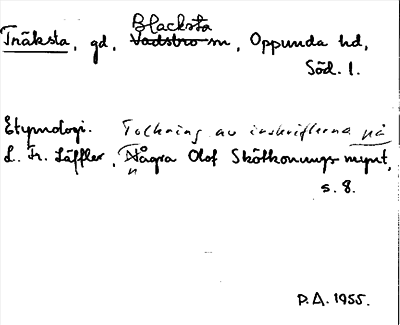 Blacksta
Träksta, gd, Vadsbro sn, Oppunda hd,
Söd. l.
Etymologi. Tolkning av inskrifterna på
L. Fr. Läffler, Några Olof Skötkonungs mynt,
s. 8.
P.A. 1955.